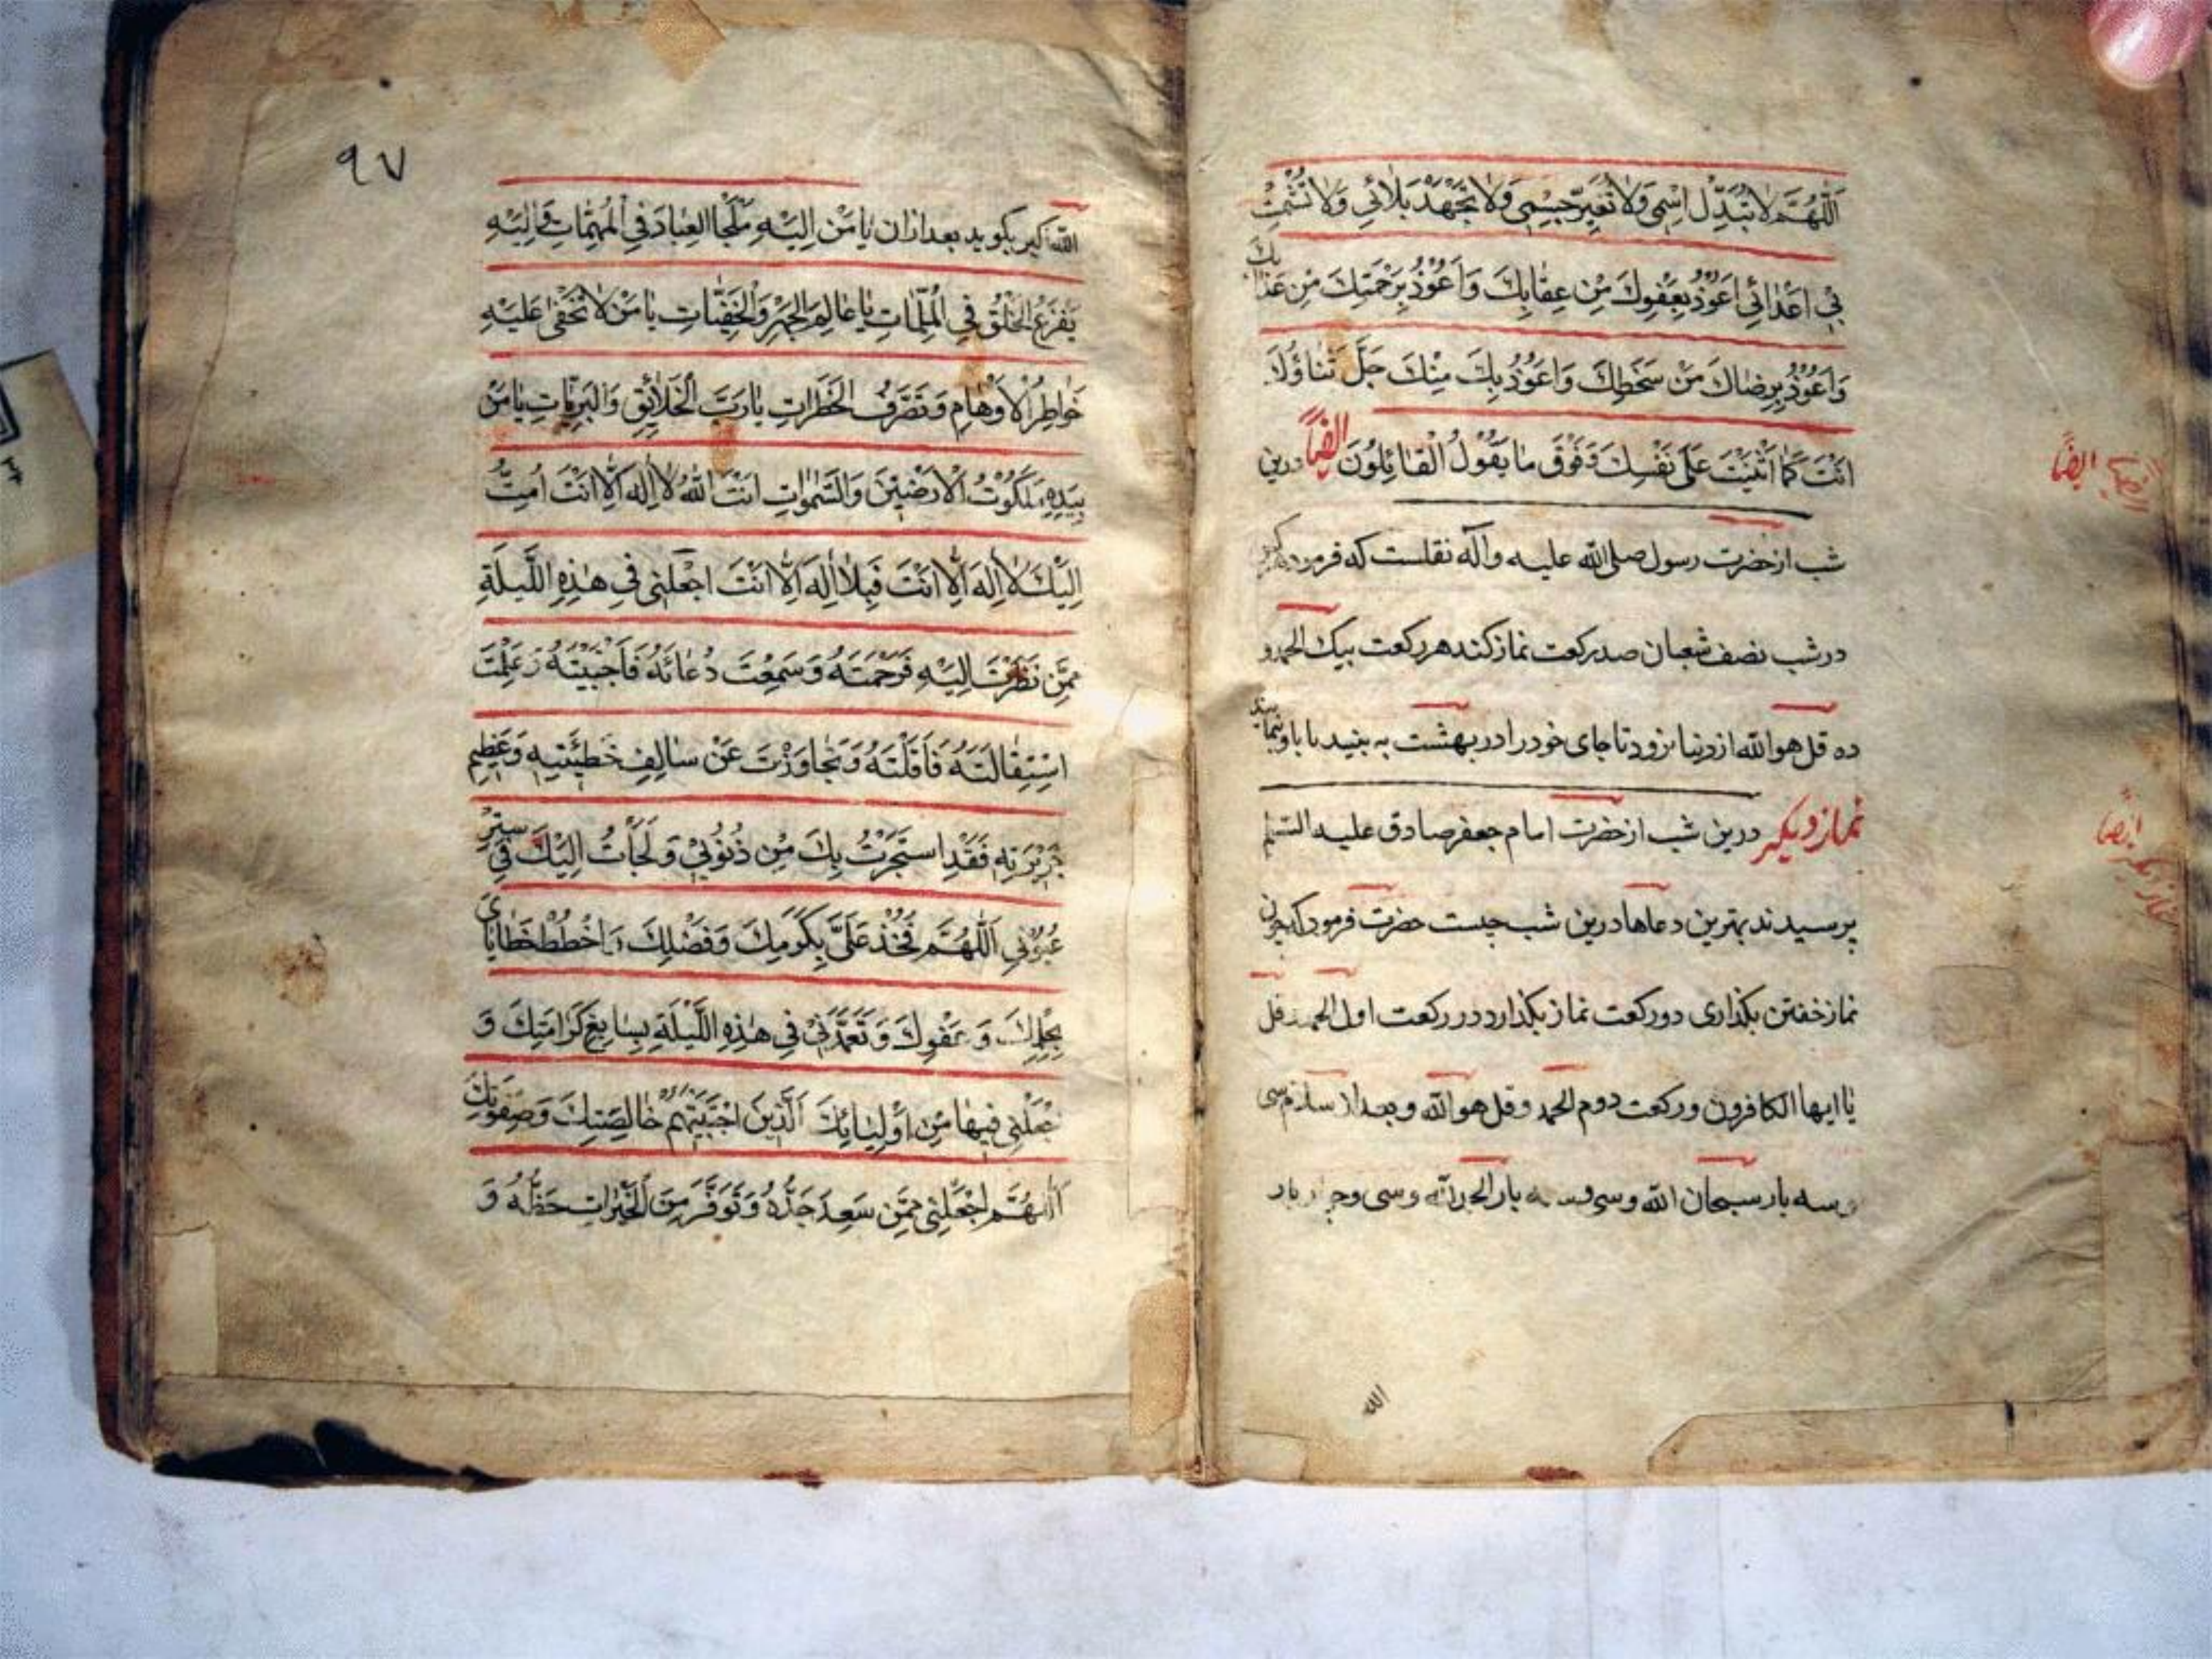 اَللّٰهُمَّ لَا تُبَدِّلْ اِسْمِی وَلَا تُغَیِّرْ جِسْمِی وَلَا تَجْهَدْ بَلَائِی وَلَا تُشْمِتْ
بِی اَعْدَائِی اَعُوْذُ بِعَفْوِكَ مِنْ عِقَابِكَ وَاَعُوْذُ بِرَحْمَتِكَ مِنْ عَذَابِكَ
وَاَعُوْذُ بِرِضَاكَ مِنْ سَخَطِكَ وَاَعُوْذُ بِكَ مِنْكَ جَلَّ ثَنَاؤُكَ
اَنْتَ كَمَا اَثْنَیْتَ عَلٰی نَفْسِكَ وَفَوْقَ مَا یَقُوْلُ الْقَائِلُوْنَ ایضاً درین
شب از حضرت رسول صلی الله علیه وآله نقلست که فرمود
در شب نصف شعبان صد رکعت نماز کند هر رکعت بیک الحمد و
ده قل هو الله از دنیا نرود تا جای خود را در بهشت به بیند یا باو نمایند
نماز دیکر درین شب از حضرت امام جعفر صادق علیه السلم
پرسیدند بهترین دعاها درین شب چیست حضرت فرمود که چون
نماز خفتن بکذاری دو رکعت نماز بکذارد در رکعت اول الحمد قل
یا ایها الکافرون و رکعت دوم الحمد و قل هو الله و بعد از سلام سی
و سه بار سبحان الله و سی و سه بار الحمد لله و سی و چهار بار
ایضاً
ایضاً
نماز دیکر
الله
٩٧
الله اکبر بکوید بعد ازان یَا مَنْ اِلَیْهِ مَلْجَأُ الْعِبَادِ فِی الْمُهِمَّاتِ وَاِلَیْهِ
یَفْزَعُ الْخَلْقُ فِی الْمُلِمَّاتِ یَا عَالِمَ الْجَهْرِ وَالْخَفِیَّاتِ یَا مَنْ لَا تَخْفٰی عَلَیْهِ
خَوَاطِرُ الْاَوْهَامِ وَتَصَرُّفُ الْخَطَرَاتِ یَا رَبَّ الْخَلَائِقِ وَالْبَرِیَّاتِ یَا مَنْ
بِیَدِهِ مَلَكُوْتُ الْاَرَضِیْنَ وَالسَّمٰوَاتِ اَنْتَ اللّٰهُ لَا اِلٰهَ اِلَّا اَنْتَ اَمُتُّ
اِلَیْكَ لَا اِلٰهَ اِلَّا اَنْتَ فَبِلَا اِلٰهَ اِلَّا اَنْتَ اجْعَلْنِی فِی هٰذِهِ اللَّیْلَةِ
مِمَّنْ نَظَرْتَ اِلَیْهِ فَرَحِمْتَهُ وَسَمِعْتَ دُعَائَهُ فَاَجَبْتَهُ وَعَلِمْتَ
اسْتِقَالَتَهُ فَاَقَلْتَهُ وَتَجَاوَزْتَ عَنْ سَالِفِ خَطِیْئَتِهِ وَعَظِیْمِ
جَرِیْرَتِهِ فَقَدِ اسْتَجَرْتُ بِكَ مِنْ ذُنُوْبِی وَلَجَأْتُ اِلَیْكَ فِی سِتْرِ
عُیُوْبِی اَللّٰهُمَّ فَجُدْ عَلَیَّ بِكَرَمِكَ وَفَضْلِكَ وَاحْطُطْ خَطَایَایَ
بِحِلْمِكَ وَعَفْوِكَ وَتَغَمَّدْنِی فِی هٰذِهِ اللَّیْلَةِ بِسَابِغِ كَرَامَتِكَ وَ
اجْعَلْنِی فِیْهَا مِنْ اَوْلِیَائِكَ الَّذِیْنَ اجْتَبَیْتَهُمْ خَالِصَتِكَ وَصَفْوَتِكَ
اَللّٰهُمَّ اجْعَلْنِی مِمَّنْ سَعِدَ جَدُّهُ وَتَوَفَّرَ مِنَ الْخَیْرَاتِ حَظُّهُ وَ